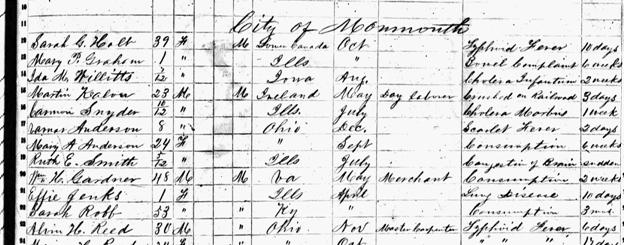 City of Monmouth
Sarah G. Holt 39 F M Lower Canada Oct Typhoid Fever 10 days
Mary P. Graham 1 " Ills " Bowel Complaint 6 weeks
Ida M. Willitts 7/12 " Iowa Aug. Cholera Infantum 2 weeks
Martin 23 M M Ireland May Day laborer Crushed on Railroad 3 days
Snyder 10/12 " Ills. July Cholera Morbus 1 week
Anderson 8 " Ohio Dec. Scarlet Fever 2 days
Mary A Anderson 24 F " Sept Consumption 6 weeks
Ruth E. Smith /12 " Ills July Congestion of Brain sudden
Wm H. Gardner 48 M M Va May Merchant Consumption 2 weeks
Effie Jenks 1 F Ills April Lung Disease 10 days
Sarah Robb 53 " " Ky " Consumption 3 
Alvin H. Reed 30 M " Ohio Nov Master Carpenter Typhoid Fever 6 days
" Oct " " days